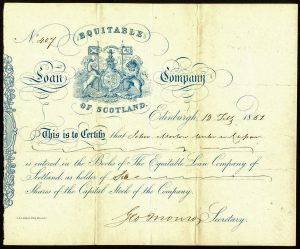 No. 407
EQUITABLE
Loan Company
OF SCOTLAND.
Edinburgh, 13 July 1851
This is to Certify that John
is entered in the Books of The Equitable Loan Company of
Scotland, as holder of Six
Shares of the Capital Stock of the Company.
Geo Monro Secretary.